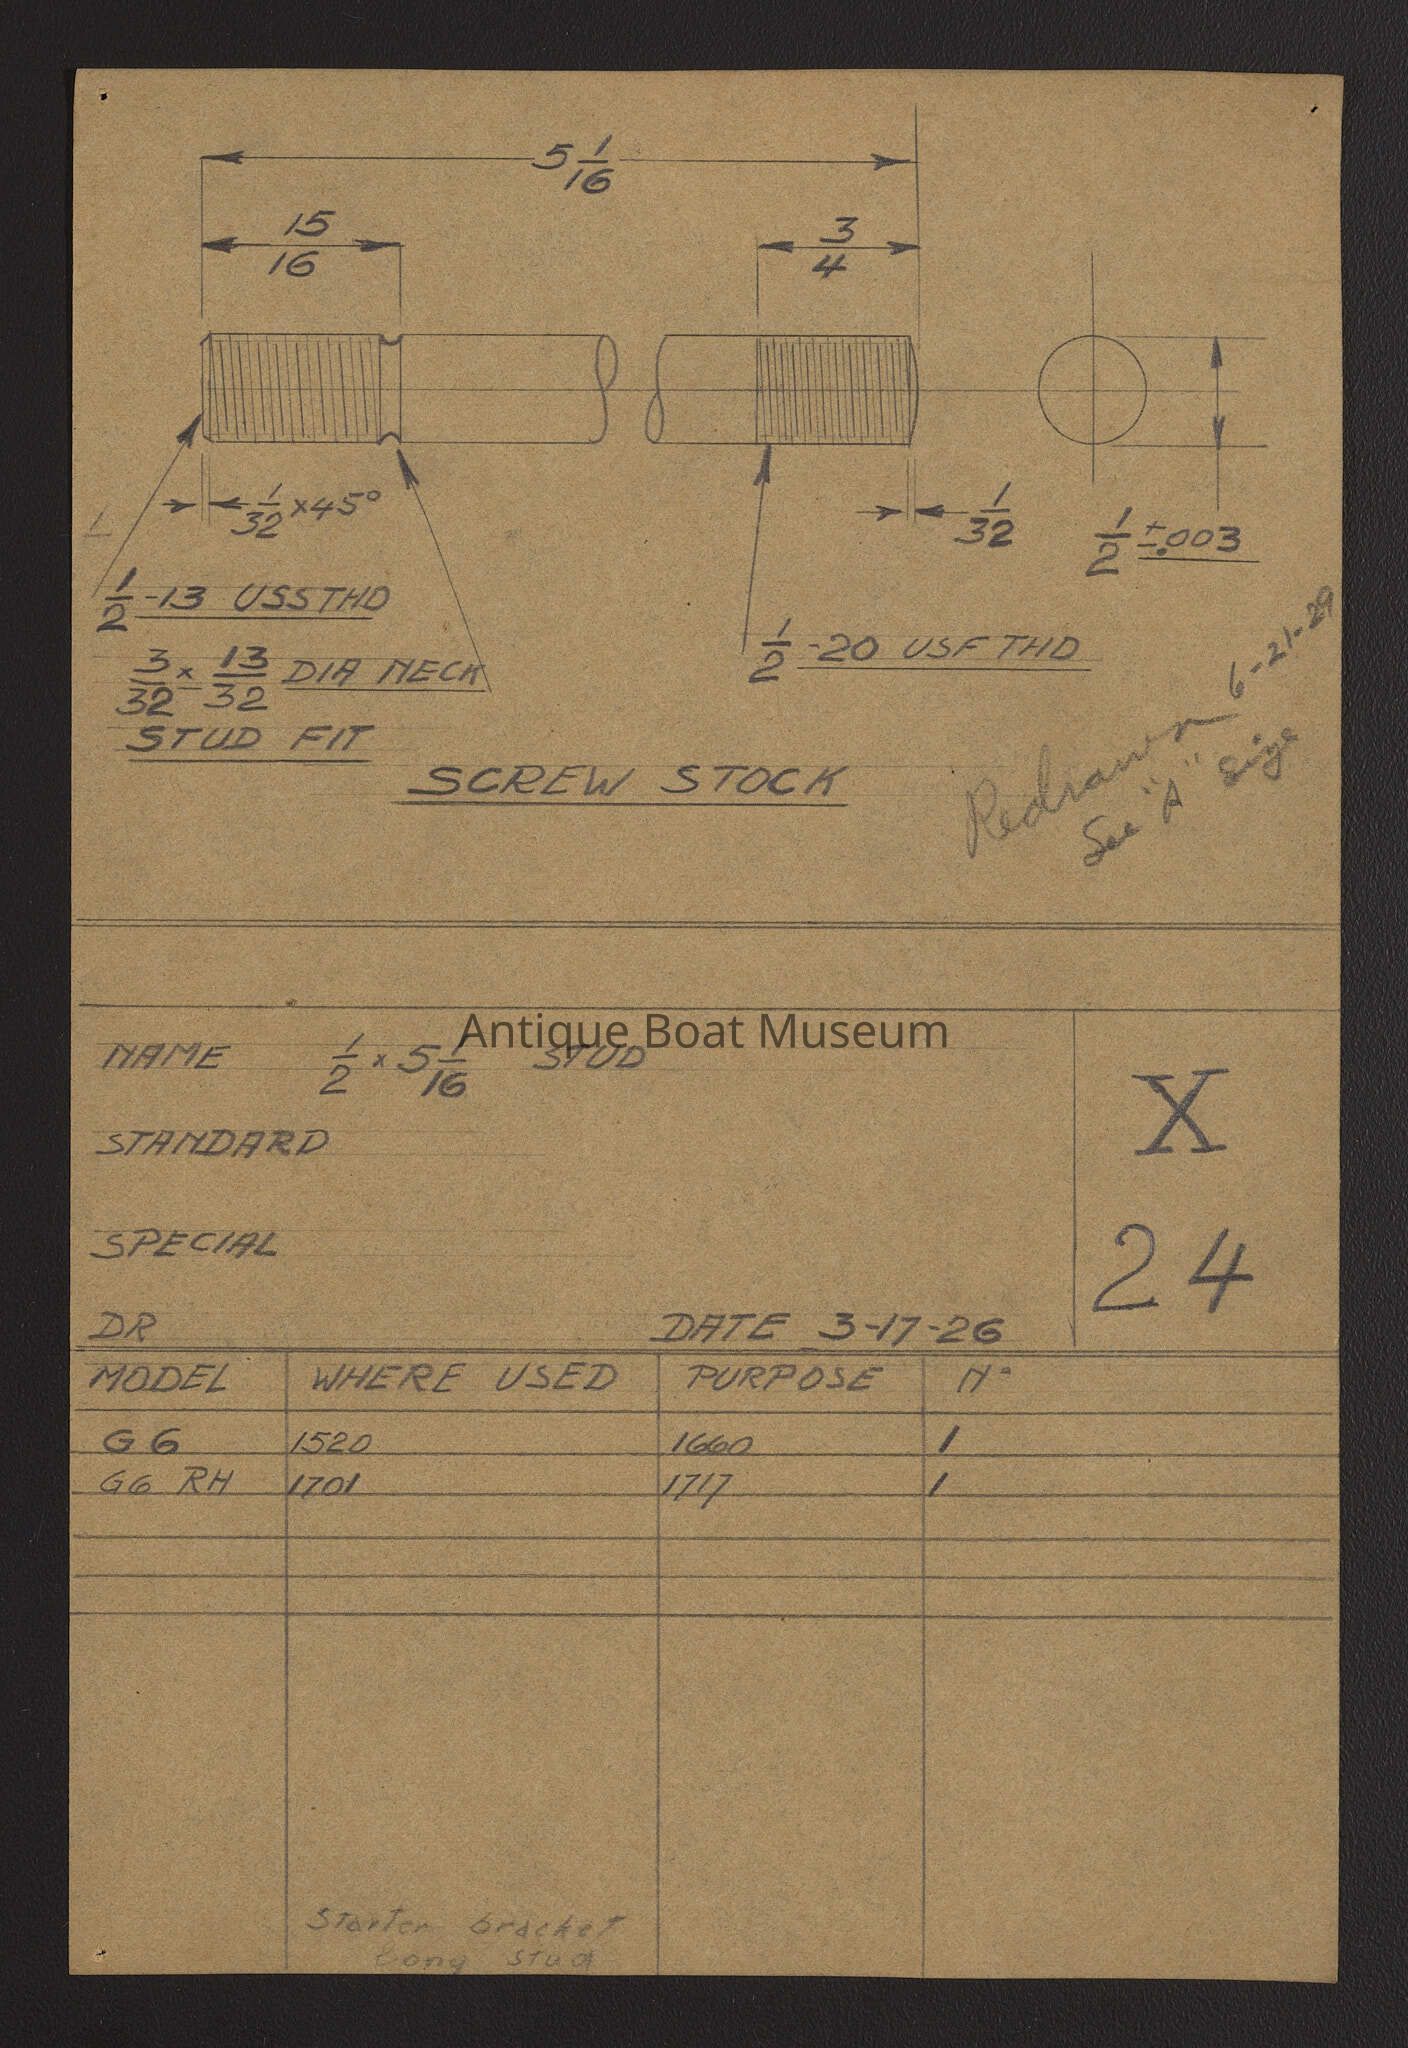 5 1/16
15/16
3/4
1/32 x 45°
1/32
1/2 ±.003
1/2 -13 USS THD
1/2 -20 USF THD
3/32 x 13/32 DIA NECK
STUD FIT
SCREW STOCK
Redrawn 6-21-29
See "A" Size
Antique Boat Museum
NAME 1/2 x 5 1/16 STUD
X
STANDARD
SPECIAL
24
DR DATE 3-17-26
MODEL WHERE USED PURPOSE N°
G6 1520 1660 1
G6 RH 1701 1717 1
Starter bracket
long stud